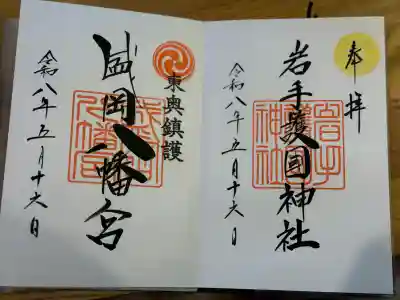 奉拝
岩手護國神社
令和八年五月十六日
東奥鎮護
盛岡八幡宮
令和八年五月十六日